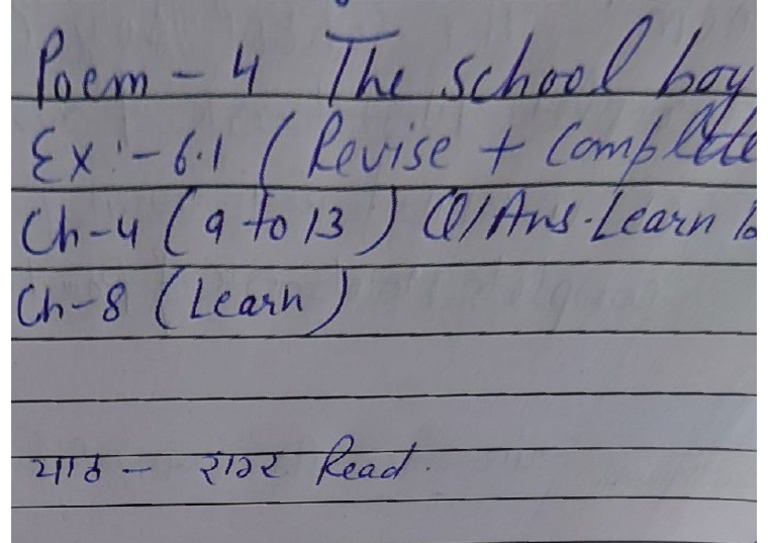 Poem - 4 The school boy
Ex :- 6.1 (Revise + Complete
Ch-4 (9 to 13) Q/Ans. Learn
Ch-8 (Learn)
पाठ - Read.